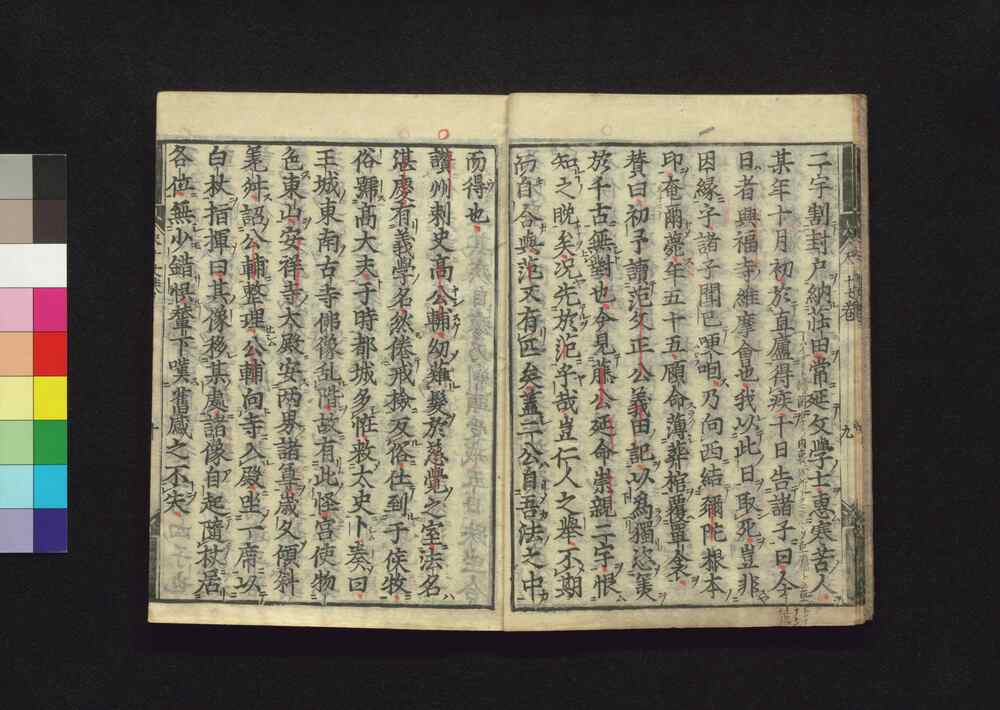 二宇割封戸納莊田常延文學士惠寒苦人
某年十月初於直廬得疾十日告諸子曰今
日者興福寺維摩會也我以此日取死豈非
因縁乎諸子聞已哽咽乃向西結彌陀根本
印奄爾薨年五十五顧命薄葬棺覆單衾
賛曰初予讀范文正公義田記以爲獨恣美
於千古無對也今見藤公延命崇親二字恨
知之晚矣况先於范乎哉豈仁人之擧不期
而自合與范又有匹矣蓋二公自吾法之中
而得也
讃州刺史高公輔幼難髮於慈覺之室法名
湛慶有義學名然倦戒撿反俗仕到于侯牧
俗號高大夫于時都城多恠救太史卜奏曰
王城東南古寺佛像乱階故有此怪宮使物
色東山安祥寺大殿安兩界諸尊歳久傾斜
詔公輔整理公輔向寺入殿坐一席以
白杖指揮曰其像移某處諸像自起隨杖居
各位無少錯恨輦下嘆舊藏之不失
九
十